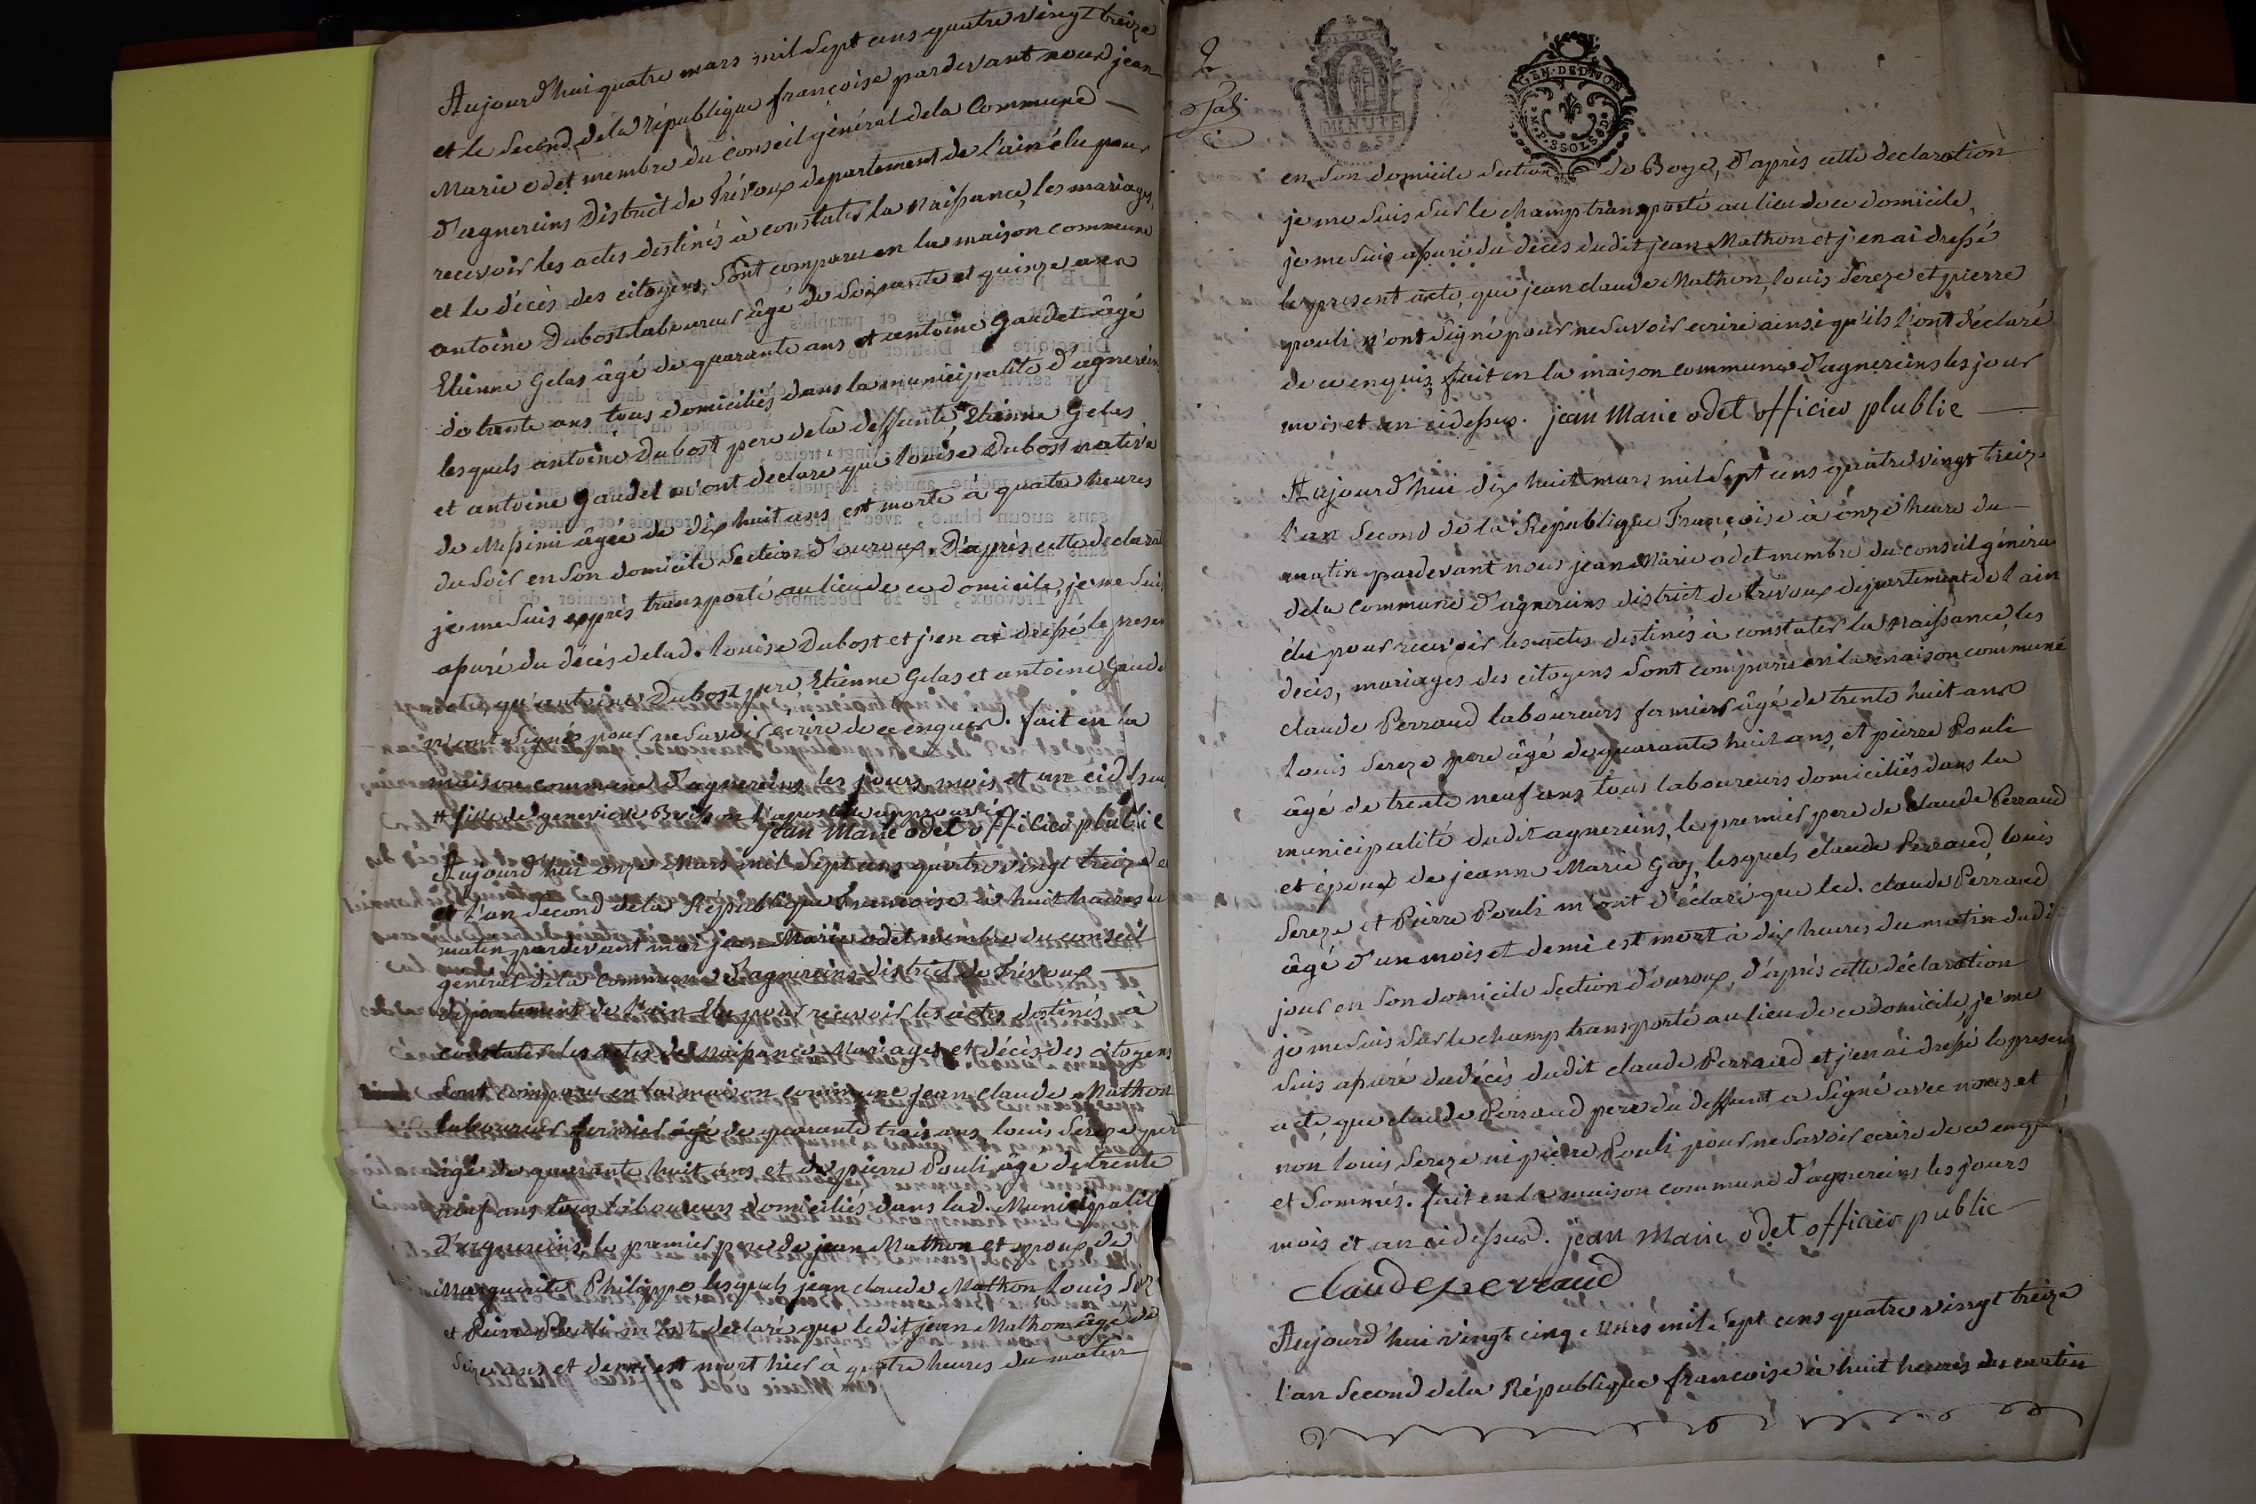 Aujourd'hui quatre mars mil Sept cens quatre vingt treize
et le Second de la république françoise pardevant nous jean
Marie odet membre du conseil général de la Commune
d'agnereins District de Trévoux departement de l'ain élu pour
recevoir les actes destinés à constater la Naissance, les mariages,
et le décès des citoyens, Sont comparu en la maison commune
antoine Dubost laboureur âgé de Soixante et quinze ans
Etienne Gelas âgé de quarante ans et antoine Gaudet âgé
de trente ans, tous domiciliés dans la municipalité d'agnereins
lesquels antoine Dubost pere de la deffunte, # Etienne Gelas
et antoine Gaudet m'ont declare que louise Dubost native
de Messimi âgée de dix huit ans est morte à quatre heures
du Soir en Son domicile Section d'ouroux. D'après cette declarat
je me Suis exprès transporté au lieu de ce domicile, je me Suis
assuré du décès de lad. louise Dubost et j'en ai dressé le presen
acte, qu'antoine Dubost pere, Etienne Gelas et antoine Gaude
n'ont Signés pour ne Savoir ecrire de ce enquis. fait en la
maison commune d'agnereins les jours, mois et an cidessus
# fille de genevieve l'apostille approuvée
jean Marie odet officier plublic
Aujourd'hui onze Mars mil Sept cens quatre vingt treize
et l'an Second de la République Françoise à huit heures du
matin pardevant moi jean Marie odet membre du conseil
général de la Commune d'agnereins district de Trévoux
département de l'ain Elu pour recevoir les actes destinés à
constater les actes de Naissance Mariages et décès des citoyens
Sont comparu en la maison commune jean claude Mathon
laboureur fermier âgé de quarante trois ans, louis Sereze pere
âgé de quarante huit ans et de pierre Pouli âgé de trente
neuf ans tous laboureurs domiciliés dans lad. Municipalité
d'agnereins, le premier pere de jean Mathon et epoux de
Marguerite Philippe lesquels jean claude Mathon, louis Serez
et Pierre Pouli m'ont declaré que ledit jean Mathon âgé de
ans et demi est mort hier à quatre heures du matin
2
en Son domicile Section de Boye, D'après cette declaration
je me Suis Sur le champ transporté au lieu de ce domicile,
je me Suis assuré du décès dudit jean Mathon et j'en ai dressé
le present acte, que jean claude Mathon, louis Sereze et pierre
pouli n'ont Signé pour ne Savoir ecrire ainsi qu'ils l'ont déclaré
de ce enquis, fait en la maison commune d'agnereins les jour
mois et an cidessus. jean Marie odet officier plublic
Aujourd'hui dix huit mars mil Sept cens quatre vingt treize
l'an Second de la République Françoise à onze heure du
matin pardevant nous jean Marie odet membre du conseil généra
de la commune d'agnereins district de trevoux departement de l'ain
élu pour recevoir les actes destinés à constater la Naissance, les
décès, mariages des citoyens Sont comparu en la maison commune
claude Perraud laboureurs fermier âgé de trente huit ans
louis Sereze pere âgé de quarante huit ans, et pierre Pouli
âgé de trente neuf ans tous laboureurs domiciliés dans la
municipalité dudit agnereins, le premier pere de claude Perraud
et époux de jeanne Marie Gay, lesquels claude Perraud, louis
Sereze et Pierre Pouli m'ont d'éclaré que led. claude Perraud
âgé d'un mois et demi est mort à dix heures du matin dudit
jour en Son domicile Section d'ouroux, d'après cette déclaration
je me Suis Sur le champ transporté au lieu de ce domicile, je me
Suis assuré du décès dudit claude Perraud et j'en ai dressé le presen
acte que claude Perraud pere du deffunt a Signé avec nous et
non louis Sereze ni pierre Pouli pour ne Savoir ecrire de ce enquis
et Sommés. fait en la maison commune d'agnereins les jours
mois et an cidessus. jean Marie odet officier public
Claude perraud
Aujourd'hui vingt cinq Mars mil Sept cens quatre vingt treize
l'an Second de la République francoise à huit heures du matin
MINUTE
GEN. DE DIJON